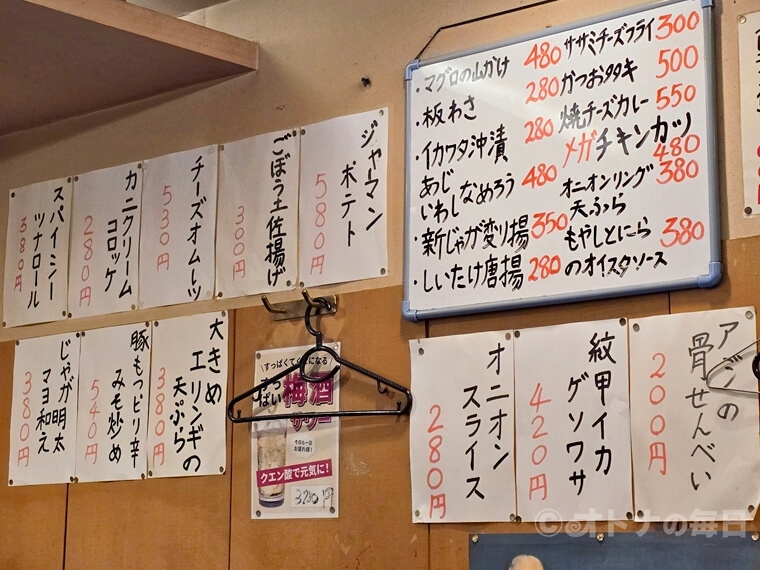 ジャーマン
ポテト
580円
ごぼう土佐揚げ
300円
チーズオムレツ
530円
カニクリーム
コロッケ
280円
スパイシー
ツナロール
380円
・マグロの山かけ 480
・板わさ 280
・イカワタ沖漬 280
あじ
いわしなめろう 480
・新じゃが変り揚 350
・しいたけ唐揚 280
ササミチーズフライ 300
かつおタタキ 500
焼チーズカレー 550
メガチキンカツ
480
オニオンリング 380
天ぷら
もやしとにら 380
のオイスタソース
大きめ
エリンギの
天ぷら
380円
豚もつピリ辛
みそ炒め
540円
じゃが明太
マヨ和え
380円
梅酒
サワー
クエン酸で元気に!
アジの
骨せんべい
200円
紋甲イカ
ゲソワサ
420円
オニオン
スライス
280円
©オトナの毎日